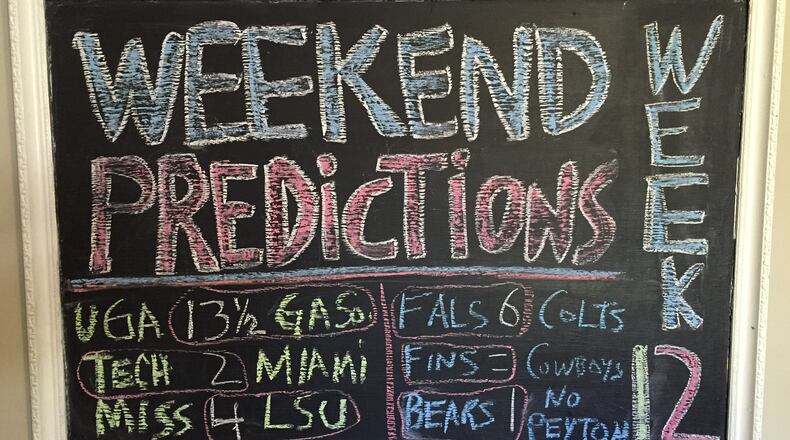 WEEKEND
PREDiCTiONS
UGA 13½ GASo
TECH 2 MIAMi
MISS 4 LSU
FALS 6 COLTS
FINS = COWBOYS
BEARS 1 NO PEYTON
WEEK
12